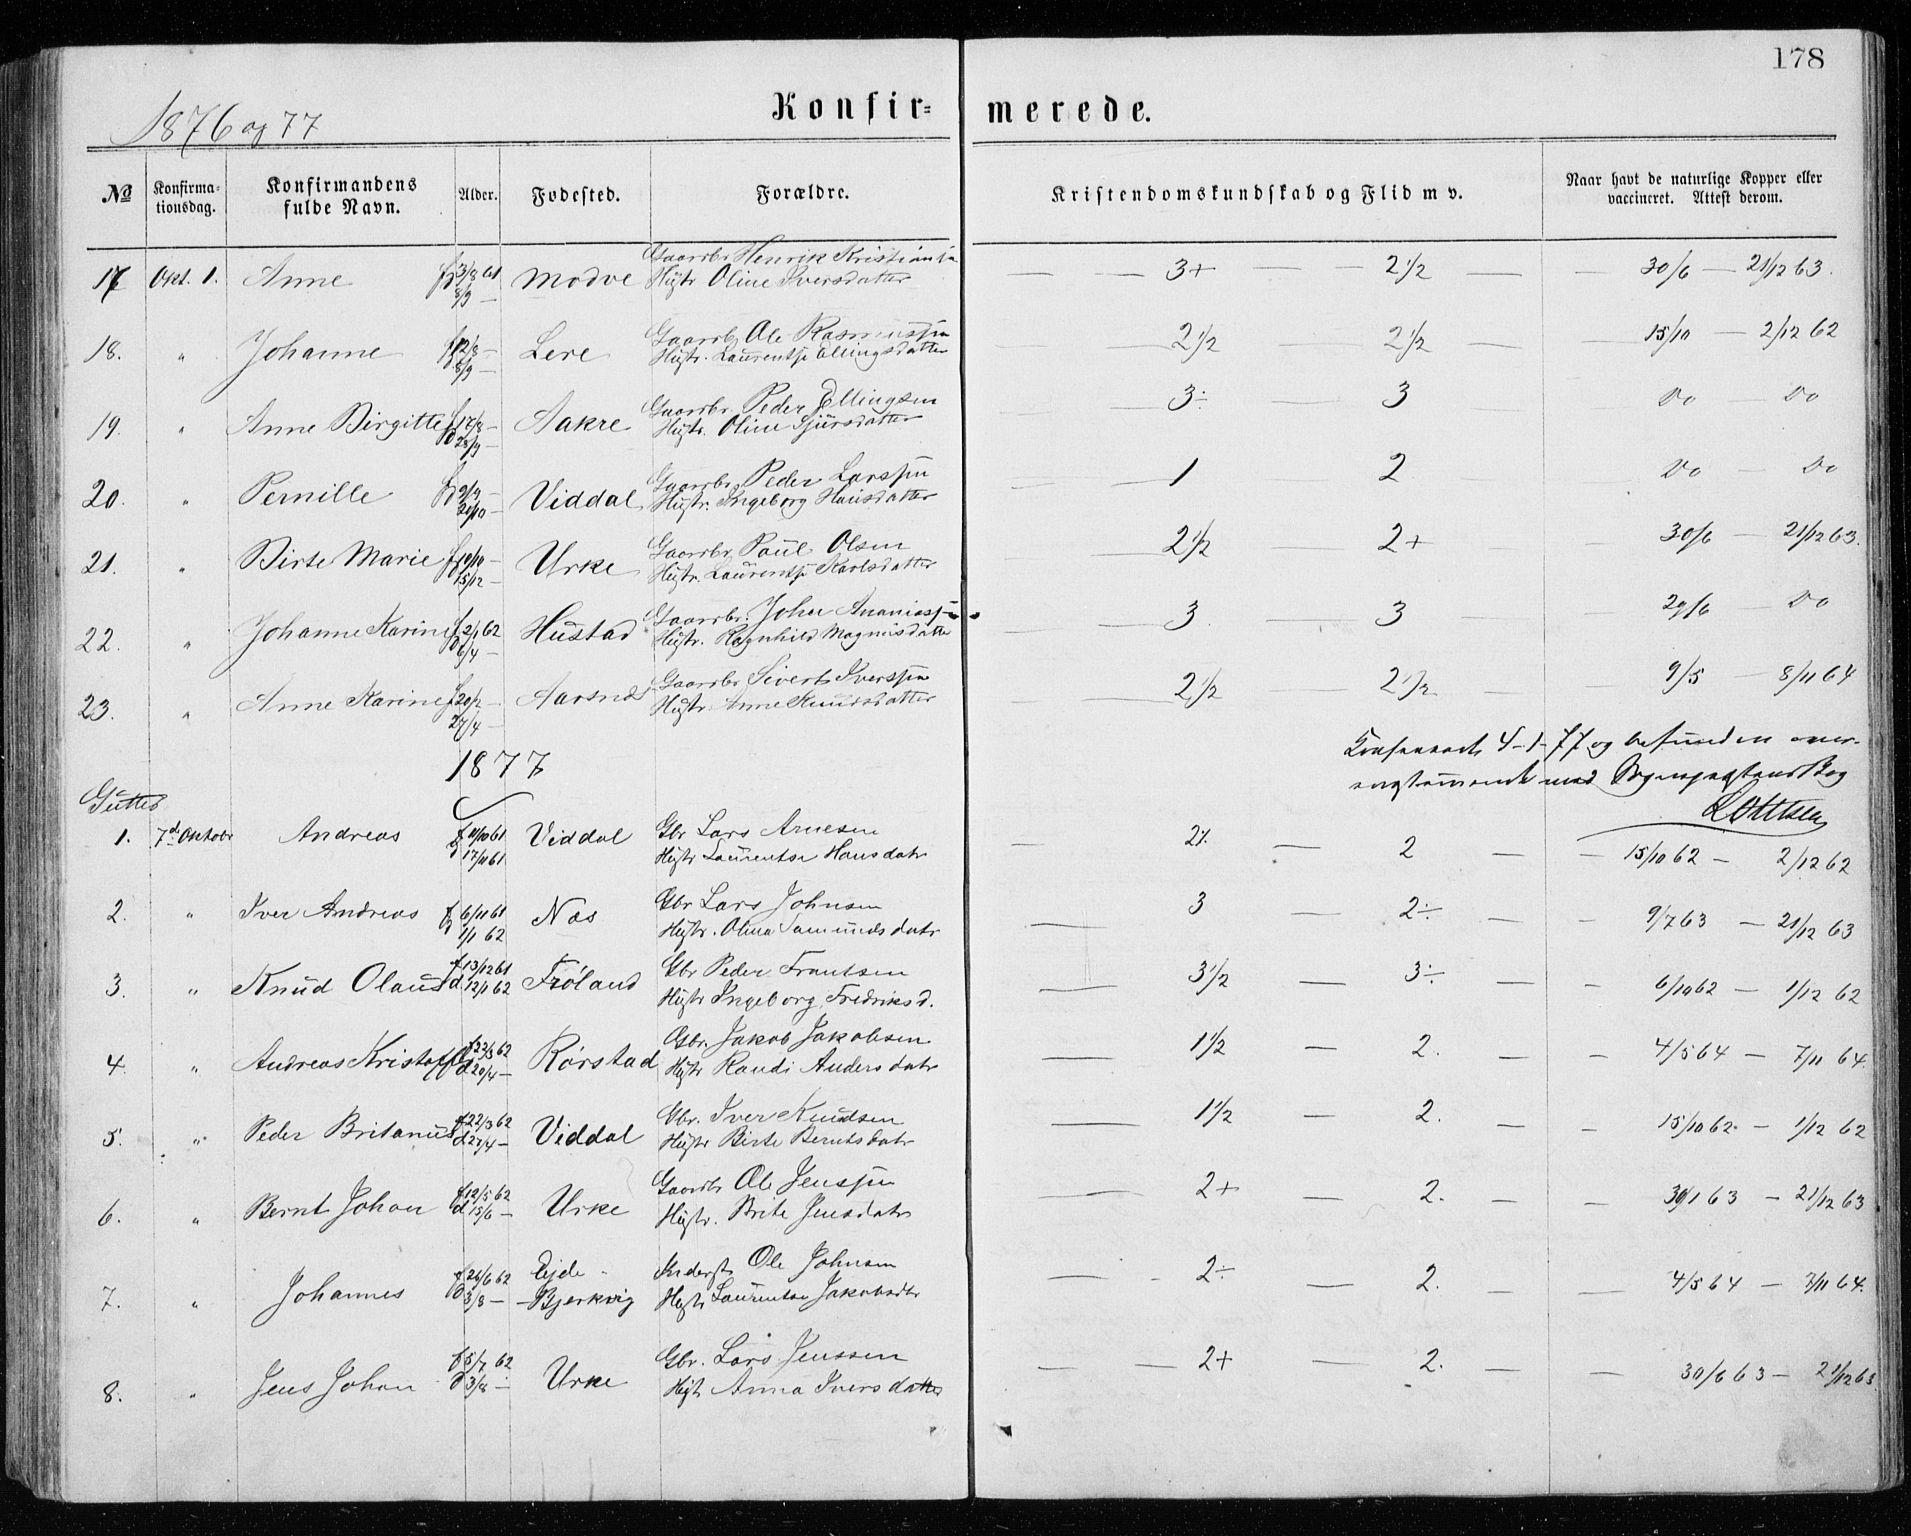 178
1876 og 77
Konfir- merede.
No
Konfirma-
tionsdag.
Konfirmandens
fulde Navn.
Alder.
Fødested.
Forældre.
Kristendomskundskab og Flid m v.
Naar havt de naturlige Kopper eller
vaccineret. Attest derom.
17 Okt. 1. Anne f 3/8 61 Modve Gaardbr Henrik Kristiansn 3+ — 2 1/2 — 30/6 — 21/12 63.
d 8/9 — Hustr Oline Iversdatter
18. " Johanne f 12/8 — Lere Gaardb. Ole Rasmussen 2 1/2 2 1/2 — 15/10 — 2/12 62
d 8/9 — Hustr. Laurentse Ellingsdatter
19. " Anne Birgitte f 17/8 — Aakre Gaardbr. Peder Ellingsen 3÷ 3 Do — Do
d 28/9 — Hustr. Oline Sjursdatter
20. " Pernille f 9/9 — Viddal Gaardbr. Peder Larssen 1 2 Do — Do
d 20/10 — Hustr. Ingeborg Hansdatter
21. " Birte Marie f 19/10 — Urke Gaardbr. Paul Olsen 2 1/2 — 2+ 30/6 — 21/12 63.
d 15/12 — Hustr. Laurentse Karlsdatter
22. " Johanne Karine f 2/1 62 Hustad Gaardbr. Johan Ananiassen 3 — 3 29/6 — Do
d 6/4 — Hustr. Ragnhild Magnusdatter
23. " Anne Karine f 20/2 — Aarsnes Gaardbr Sivert Iverssen 2 1/2 — 2 1/2 9/5 — 8/11 64
d 27/4 — Hustr. Anne Knudsdatter
1877
4-1-77 og befunden over-
med Bog
Gutter
1. 7de Oktobr Andreas f 11/10 61 Viddal Gbr Lars Arnesen 2÷ — 2 — 15/10 62 — 2/12 62
d 17/11 61 Hustr Laurentse Hansdatr
2. " Iver Andreas f 6/11 61 Nes Gbr Lars Johnsen 3 — 2÷ — 9/7 63 — 21/12 63
d 1/1 62 Hustr. Olina Samundsdatr
3. " Knud Olaus f 13/12 61 Frøland Gbr Peder Frantsen 3 1/2 — 3÷ — 6/10 62 — 1/12 62
d 12/1 62 Hustr Ingeborg Fredriksd.
4. " Andreas Kristoffer f 22/3 62 Rørstad Gbr. Jakob Jakobsen 1 1/2 — 2. — 4/5 64 — 7/11 64.
d 20/4 — Hustr Randi Andersdatr
5. " Peder Britanus f 22/3 62 Viddal Gbr. Iver Knudsen 1 1/2 — 2. — 15/10 62. — 1/12 62
d 27/4 — Hustr Birte Berntsdatr
6. " Bernt Johan f 12/5 62 Urke Gaardbr Ole Jenssen 2+ — 2. — 30/1 63 — 21/12 63
d 15/6 — Hustr. Brite Jensdatr
7. " Johannes f 26/6 62 Ejde- Inderst Ole Johnsen 2÷ — 2. — 4/5 64 — 7/11 64.
d 3/8 — -Bjerkvig Hustr Laurentse Jakobsdtr
8. " Jens Johan f 5/7 62 Urke Gbr. Lars Jenssen 2+ — 2. — 30/6 63 — 21/12 63.
d 3/8 — Hustr Anna Iversdatter